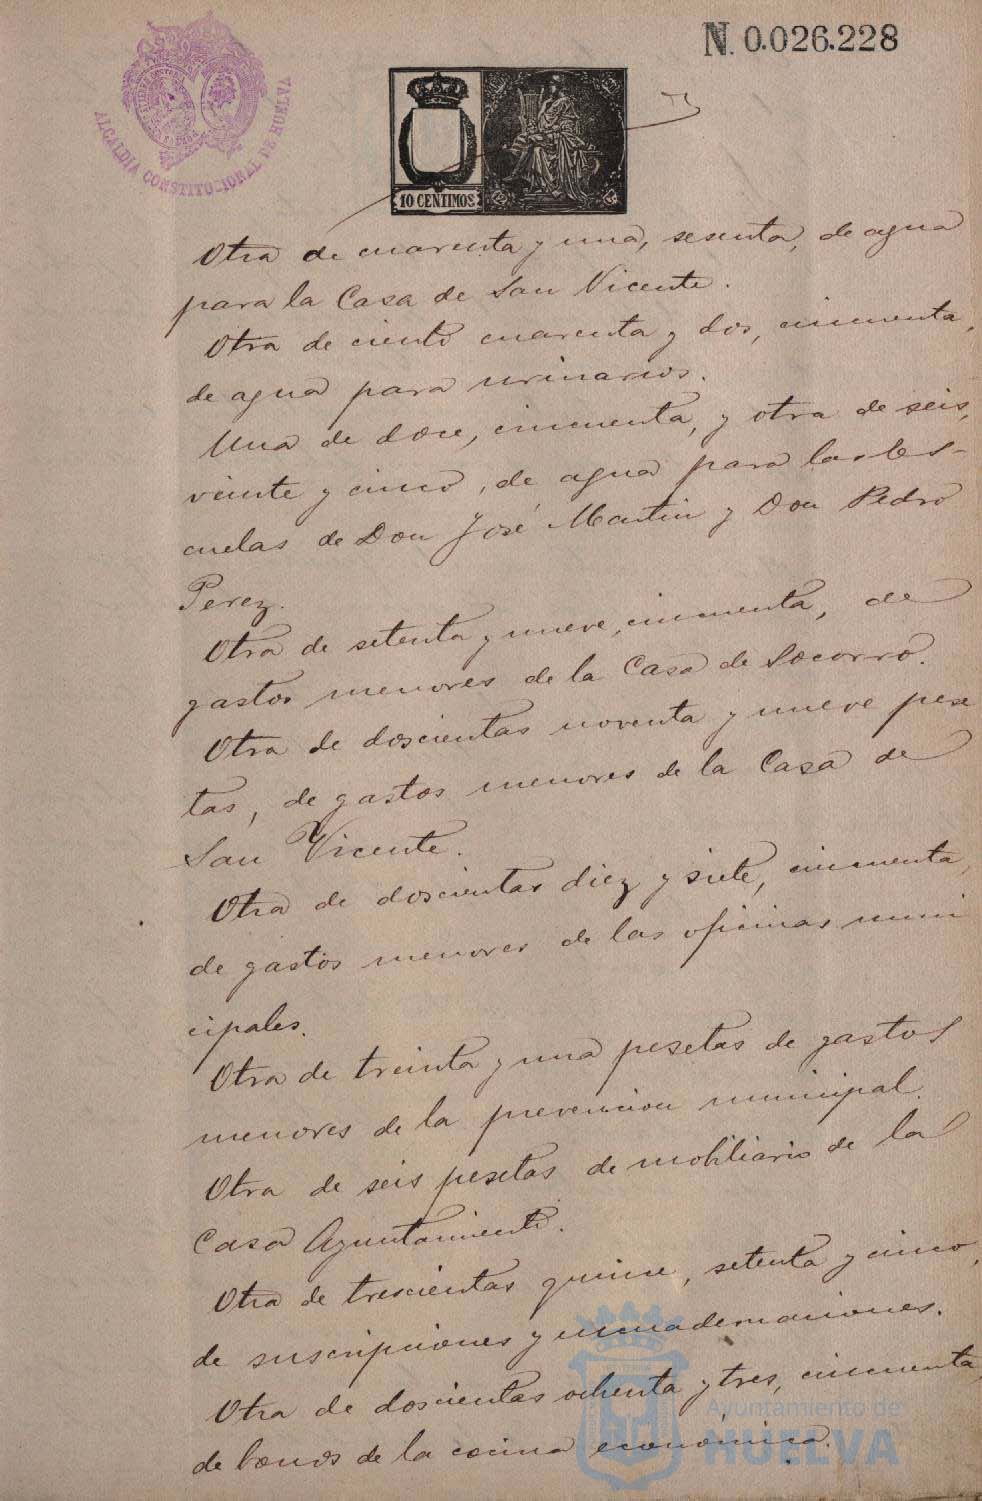 N. 0.026.228
ALCALDIA CONSTITUCIONAL DE HUELVA
10 CENTIMOS
Otra de cuarenta y una, sesenta, de agua
para la Casa de San Vicente.
Otra de ciento cuarenta y dos, cincuenta,
de agua para urinarios.
Una de doce, cincuenta, y otra de seis,
veinte y cinco, de agua para las Es-
cuelas de Don José Martin y Don Pedro
Perez.
Otra de setenta y nueve, cincuenta, de
gastos menores de la Casa de Socorro.
Otra de doscientas noventa y nueve pese
tas, de gastos menores de la Casa de
San Vicente.
Otra de doscientas diez y siete, cincuenta,
de gastos menores de las oficinas muni
cipales.
Otra de treinta y una pesetas de gastos
menores de la prevencion municipal.
Otra de seis pesetas de mobiliario de la
Casa Ayuntamiento.
Otra de trescientas quince, setenta y cinco,
de suscripciones y encuadernaciones.
Otra de doscientas ochenta y tres, cincuenta,
de bonos de la cocina económica.
Ayuntamiento de
HUELVA